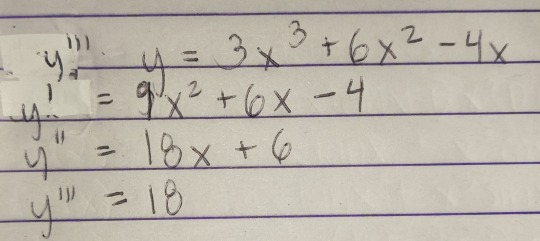 y''' y = 3x³ + 6x² - 4x
y' = 9x² + 6x - 4
y'' = 18x + 6
y''' = 18